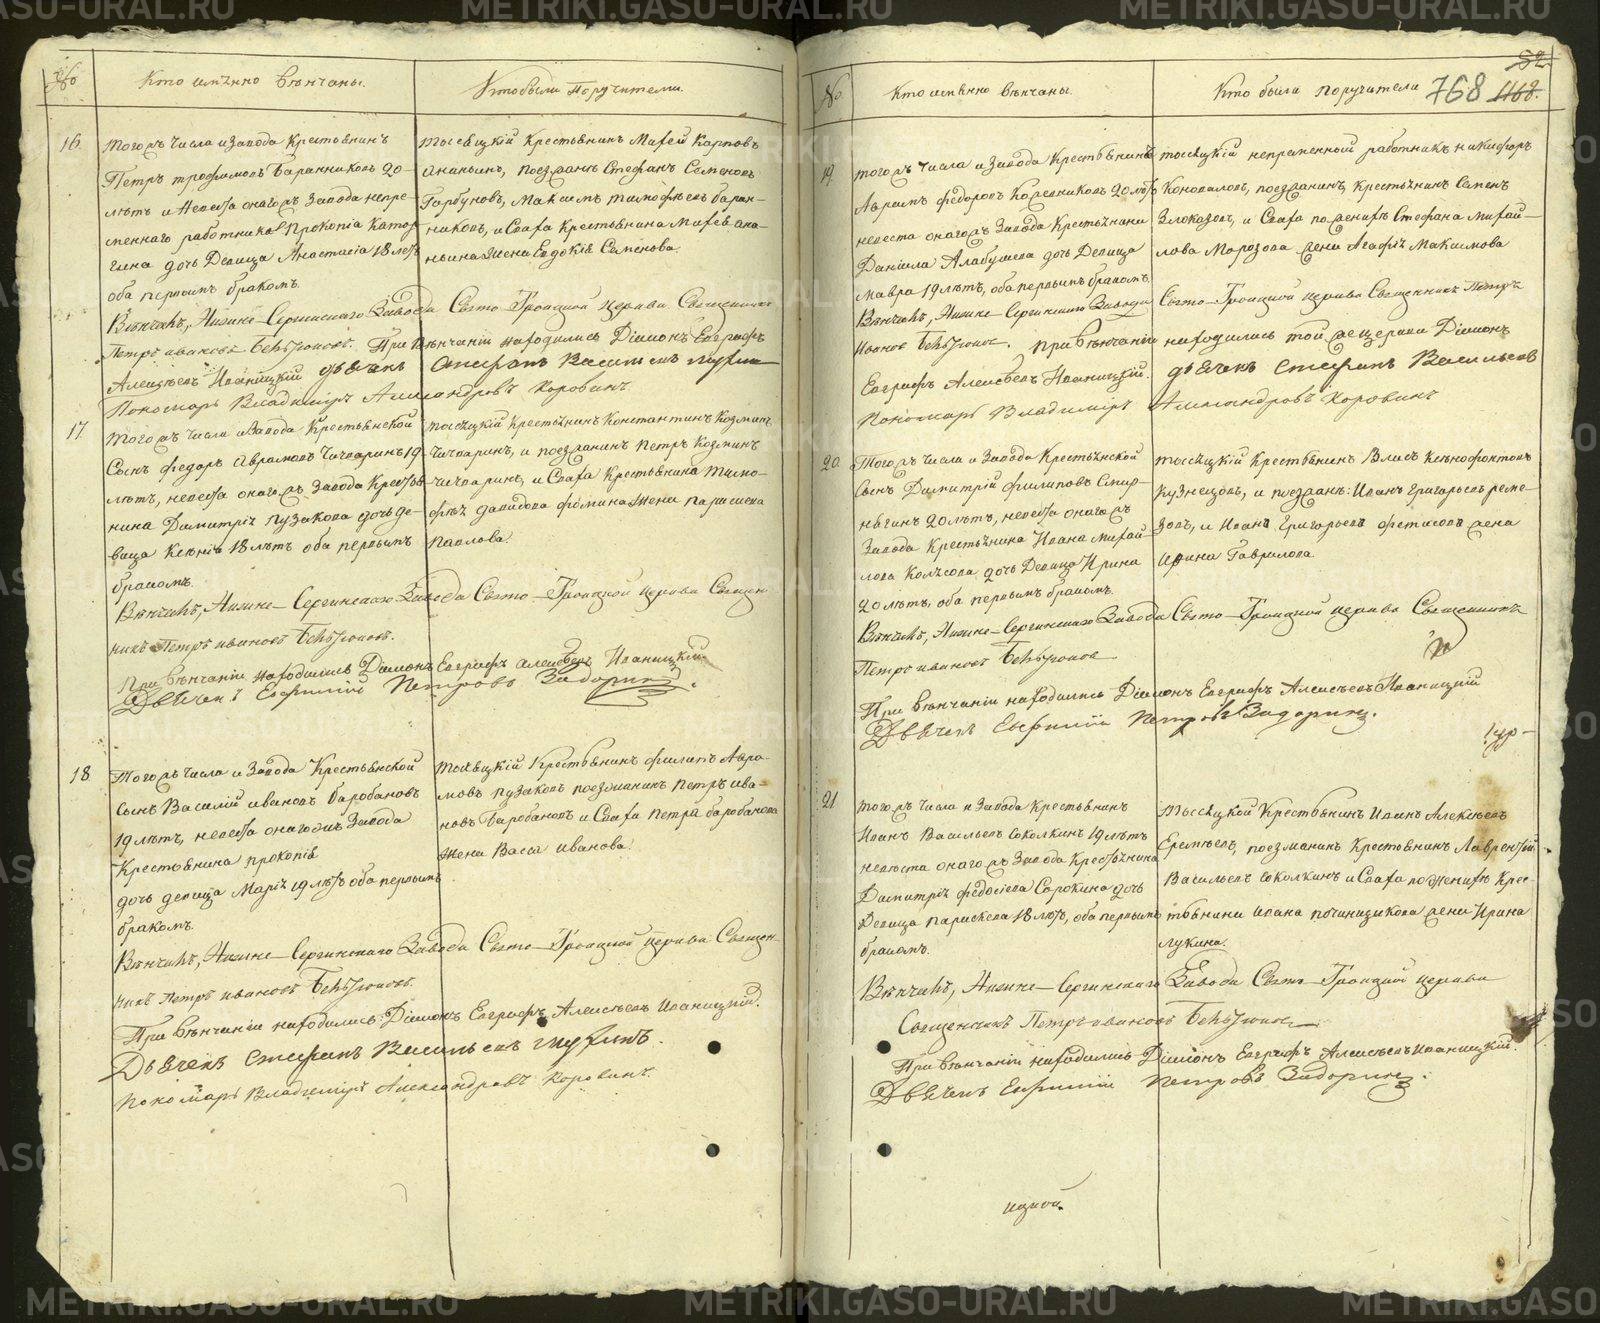 №
Кто имѣнно вѣнчаны.
Кто были поручители.
16.
Того жъ числа и завода крестьянинъ
Петръ трофимовъ Баранниковъ 20
лѣтъ и невеста онагожъ завода непре-
меннаго работника Прокопія
дочь Девица Анастасіа 18 летъ
оба первымъ бракомъ.
тысяцкій крестьянинъ Матвей Карповъ
Ананьинъ, поезжанъ Стефанъ Семеновъ
Горбуновъ, Максимъ тимофѣевъ баран-
никовъ, и Сваха крестьянина Матвея Ана-
ньина жена Евдокія Семенова.
Вѣнчалъ, Нижне-Сергинскаго Завода Свято-Троицкой церкви Священникъ
Петръ ивановъ. При вѣнчаніи находились Діаконъ Евграфъ
Алексѣевъ Иваницкій дьячекъ Стефанъ Васильевъ
Пономарь Владимиръ Александровъ Коровинъ.
17.
Того жъ числа и завода Крестьянской
Сынъ федоръ Аврамовъ Чичваринъ 19
лѣтъ, невеста онагожъ завода Крестья-
нина Димитрія пузакова дочь де-
вица Ксенія 18 лѣтъ оба первымъ
бракомъ.
тысяцкій крестьянинъ Константинъ Козминъ
Чичваринъ, и поезжанинъ Петръ Козминъ
чичваринъ, и Сваха Крестьянина тимо-
фѣя давидова фомина жена парасковя
павлова.
Вѣнчалъ, Нижне-Сергинскаго Завода Свято-Троицкой церкви Священ-
никъ Петръ ивановъ.
При вѣнчаніи находились Діаконъ Евграфъ Алексѣевъ Иваницкій
Дьячекъ Евфимій Петровъ Задоринъ.
18
Того жъ числа и завода Крестьянской
сынъ Василій ивановъ барабановъ
19 лѣтъ, невеста онагожъ завода
Крестьянина прокопія
дочь девица Марія 19 лѣтъ оба первымъ
бракомъ.
тысяцкій крестьянинъ филипъ Авра-
мовъ пузаковъ поезжанинъ петръ ива-
новъ барабановъ и Сваха петра барабанова
жена Васса иванова.
Вѣнчалъ, Нижне-Сергинскаго Завода Свято-Троицкой церкви Священ-
никъ Петръ ивановъ.
При вѣнчаніи находились: Діаконъ Евграфъ Алексѣевъ Иваницкій.
Дьячекъ Стефанъ Васильевъ
пономарь Владимиръ Александровъ Коровинъ.
52
768 1168.
№
Кто имѣнно вѣнчаны.
Кто были поручители
19.
того жъ числа и завода Крестьянинъ
Аврамъ федоровъ Кожевниковъ 20 лѣтъ
невеста онагожъ завода крестьянина
Даніила Алабушева дочь девица
мавра 19 лѣтъ, оба первымъ бракомъ.
тысяцкій непременной работникъ никифоръ
Коноваловъ, поезжанинъ, крестьянинъ Семенъ
Злоказовъ, и Сваха по женихѣ Стефана михай-
лова Морозова жена Агафія Максимова
Вѣнчалъ, Нижне-Сергинскаго Завода Свято-Троицкой церкви Священникъ Петръ
Ивановъ. При вѣнчаніи находились той же церкви Діаконъ
Евграфъ Алексѣевъ Иваницкій. дьячекъ Стефанъ Васильевъ
пономарь Владимиръ Александровъ Коровинъ
20.
Того жъ числа и завода Крестьянской
Сынъ Димитрій филиповъ Смир-
нягинъ 20 лѣтъ, невеста онагожъ
завода Крестьянина Ивана михай-
лова Колѣсова дочь девица Ирина
20 лѣтъ, оба первымъ бракомъ.
тысяцкій крестьянинъ Власъ Ксенофонтовъ
Кузнецовъ, и поезжанъ: Иванъ григорьевъ реме-
зовъ, и Иванъ Григорьевъ фетисовъ жена
Ирина Гаврилова
Вѣнчалъ, Нижне-Сергинскаго Завода Свято-Троицкой церкви Священникъ
Петръ ивановъ
При вѣнчаніи находились Діаконъ Евграфъ Алексѣевъ Иваницкій
Дьячекъ Евфимій Петровъ Задоринъ.
21
того жъ числа и завода Крестьянинъ
Иванъ Васильевъ соколкинъ 19 лѣтъ
невѣста онагожъ завода Крестьянина
Димитрія федосіева Сорокина дочь
девица параскева 18 лѣтъ, оба первымъ
бракомъ.
тысяцкой Крестьянинъ Иванъ Алексѣевъ
Еремѣевъ, поезжанинъ Крестьянинъ Лаврентій
Васильевъ соколкинъ и Сваха по женихѣ Крес-
тьянина ивана починщикова жена Ирина
лукина.
Вѣнчалъ, Нижне-Сергинскаго Завода Свято-Троицкой церкви
Священникъ Петръ ивановъ
При вѣнчаніи находились Діаконъ Евграфъ Алексѣевъ Иваницкій.
Дьячекъ Евфимій Петровъ Задоринъ.
METRIKI.GASO-URAL.RU